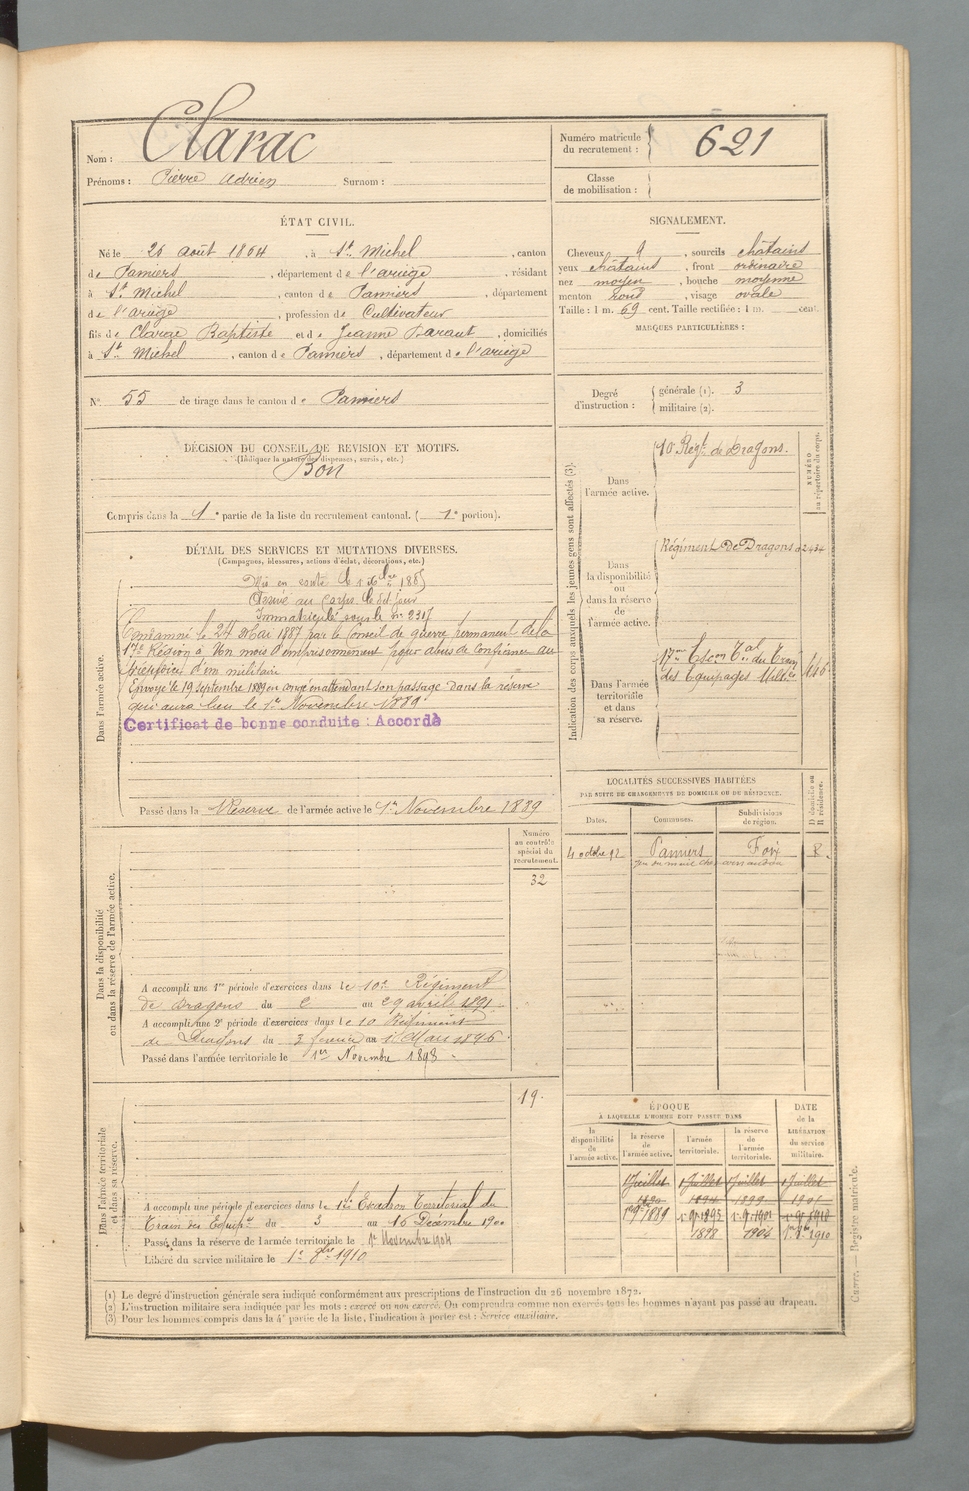 Nom : Clarac
Prénoms : Pierre Adrien Surnom :
Numéro matricule du recrutement : 621
Classe de mobilisation :
ÉTAT CIVIL.
Né le 26 août 1864, à St Michel, canton
de Pamiers, département de l'ariège, résidant
à St Michel, canton de Pamiers, département
de l'ariège, profession de Cultivateur
fils de Clarac Baptiste et de Jeanne, domiciliés
à St Michel, canton de Pamiers, département de l'ariège
N° 55 de tirage dans le canton de Pamiers
SIGNALEMENT.
Cheveux, sourcils châtains
yeux châtains, front ordinaire
nez moyen, bouche moyenne
menton rond, visage ovale
Taille : 1 m. 69 cent. Taille rectifiée : 1 m. cent.
MARQUES PARTICULIÈRES :
Degré d'instruction : générale (1). 3
militaire (2).
DÉCISION DU CONSEIL DE REVISION ET MOTIFS.
(Indiquer la nature des dispenses, sursis, etc.)
Bon
Compris dans la 1e partie de la liste du recrutement cantonal. (1e portion).
DÉTAIL DES SERVICES ET MUTATIONS DIVERSES.
(Campagnes, blessures, actions d'éclat, décorations, etc.)
Dans l'armée active.
Mis en route le 1 Xbre 1885
Arrivé au Corps le dit jour
Immatriculé sous le n° 2315
Condamné le 24 Mai 1887 par le Conseil de guerre permanent de la
17e Région à Un mois d'emprisonnement pour abus de confiance au
préjudice d'un militaire
Envoyé le 19 septembre 1889 en congé en attendant son passage dans la réserve
qui aura lieu le 1er Novembre 1889
Certificat de bonne conduite : Accordé
Passé dans la Réserve de l'armée active le 1er Novembre 1889
Indication des corps auxquels les jeunes gens sont affectés (3).
NUMÉRO au répertoire du corps.
Dans l'armée active.
10e Régt de Dragons.
Dans la disponibilité ou dans la réserve de l'armée active.
Régiment de Dragons
Dans l'armée territoriale et dans sa réserve.
17me Escon Tal du Train
des Equipages Milres
LOCALITÉS SUCCESSIVES HABITÉES
PAR SUITE DE CHANGEMENTS DE DOMICILE OU DE RÉSIDENCE.
Dates. Communes. Subdivisions de région. D domicile ou R résidence.
4 octobre 92 Pamiers Foix R.
Dans la disponibilité ou dans la réserve de l'armée active.
Numéro au contrôle spécial du recrutement.
32
A accompli une 1re période d'exercices dans le 10e Régiment
de Dragons du 2 au 29 avril 1891
A accompli une 2e période d'exercices dans le 10 Régiment
de Dragons du 3 février au 1er Mars 1896
Passé dans l'armée territoriale le 1er Novembre 1898
Dans l'armée territoriale et dans sa réserve.
19.
A accompli une période d'exercices dans le Escadron Territorial du
Train des Equipes du 3 au 15 Décembre 1900
Passé dans la réserve de l'armée territoriale le 1er Novembre 1904
Libéré du service militaire le 1er 9bre 1910
ÉPOQUE
À LAQUELLE L'HOMME DOIT PASSER DANS
la disponibilité de l'armée active. la réserve de l'armée active. l'armée territoriale. la réserve de l'armée territoriale.
DATE de la LIBÉRATION du service militaire.
1 Juillet 1 Juillet 1 Juillet 1 Juillet
1890 1894 1899 1905
1er 9bre 1889 1er 9bre 1895 1er 9bre 1901 1er 9bre 1910
1898 1904 1er 9bre 1910
(1) Le degré d'instruction générale sera indiqué conformément aux prescriptions de l'instruction du 26 novembre 1872.
(2) L'instruction militaire sera indiquée par les mots : exercé ou non exercé. On comprendra comme non exercés tous les hommes n'ayant pas passé au drapeau.
(3) Pour les hommes compris dans la 4e partie de la liste, l'indication à porter est : Service auxiliaire.
Guerre. — Registre matricule.